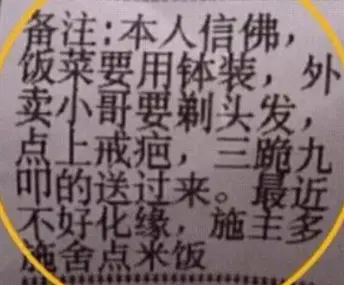 备注:本人信佛，
饭菜要用钵装，外
卖小哥要剃头发，
点上戒疤，三跪九
叩的送过来。最近
不好化缘，施主多
施舍点米饭